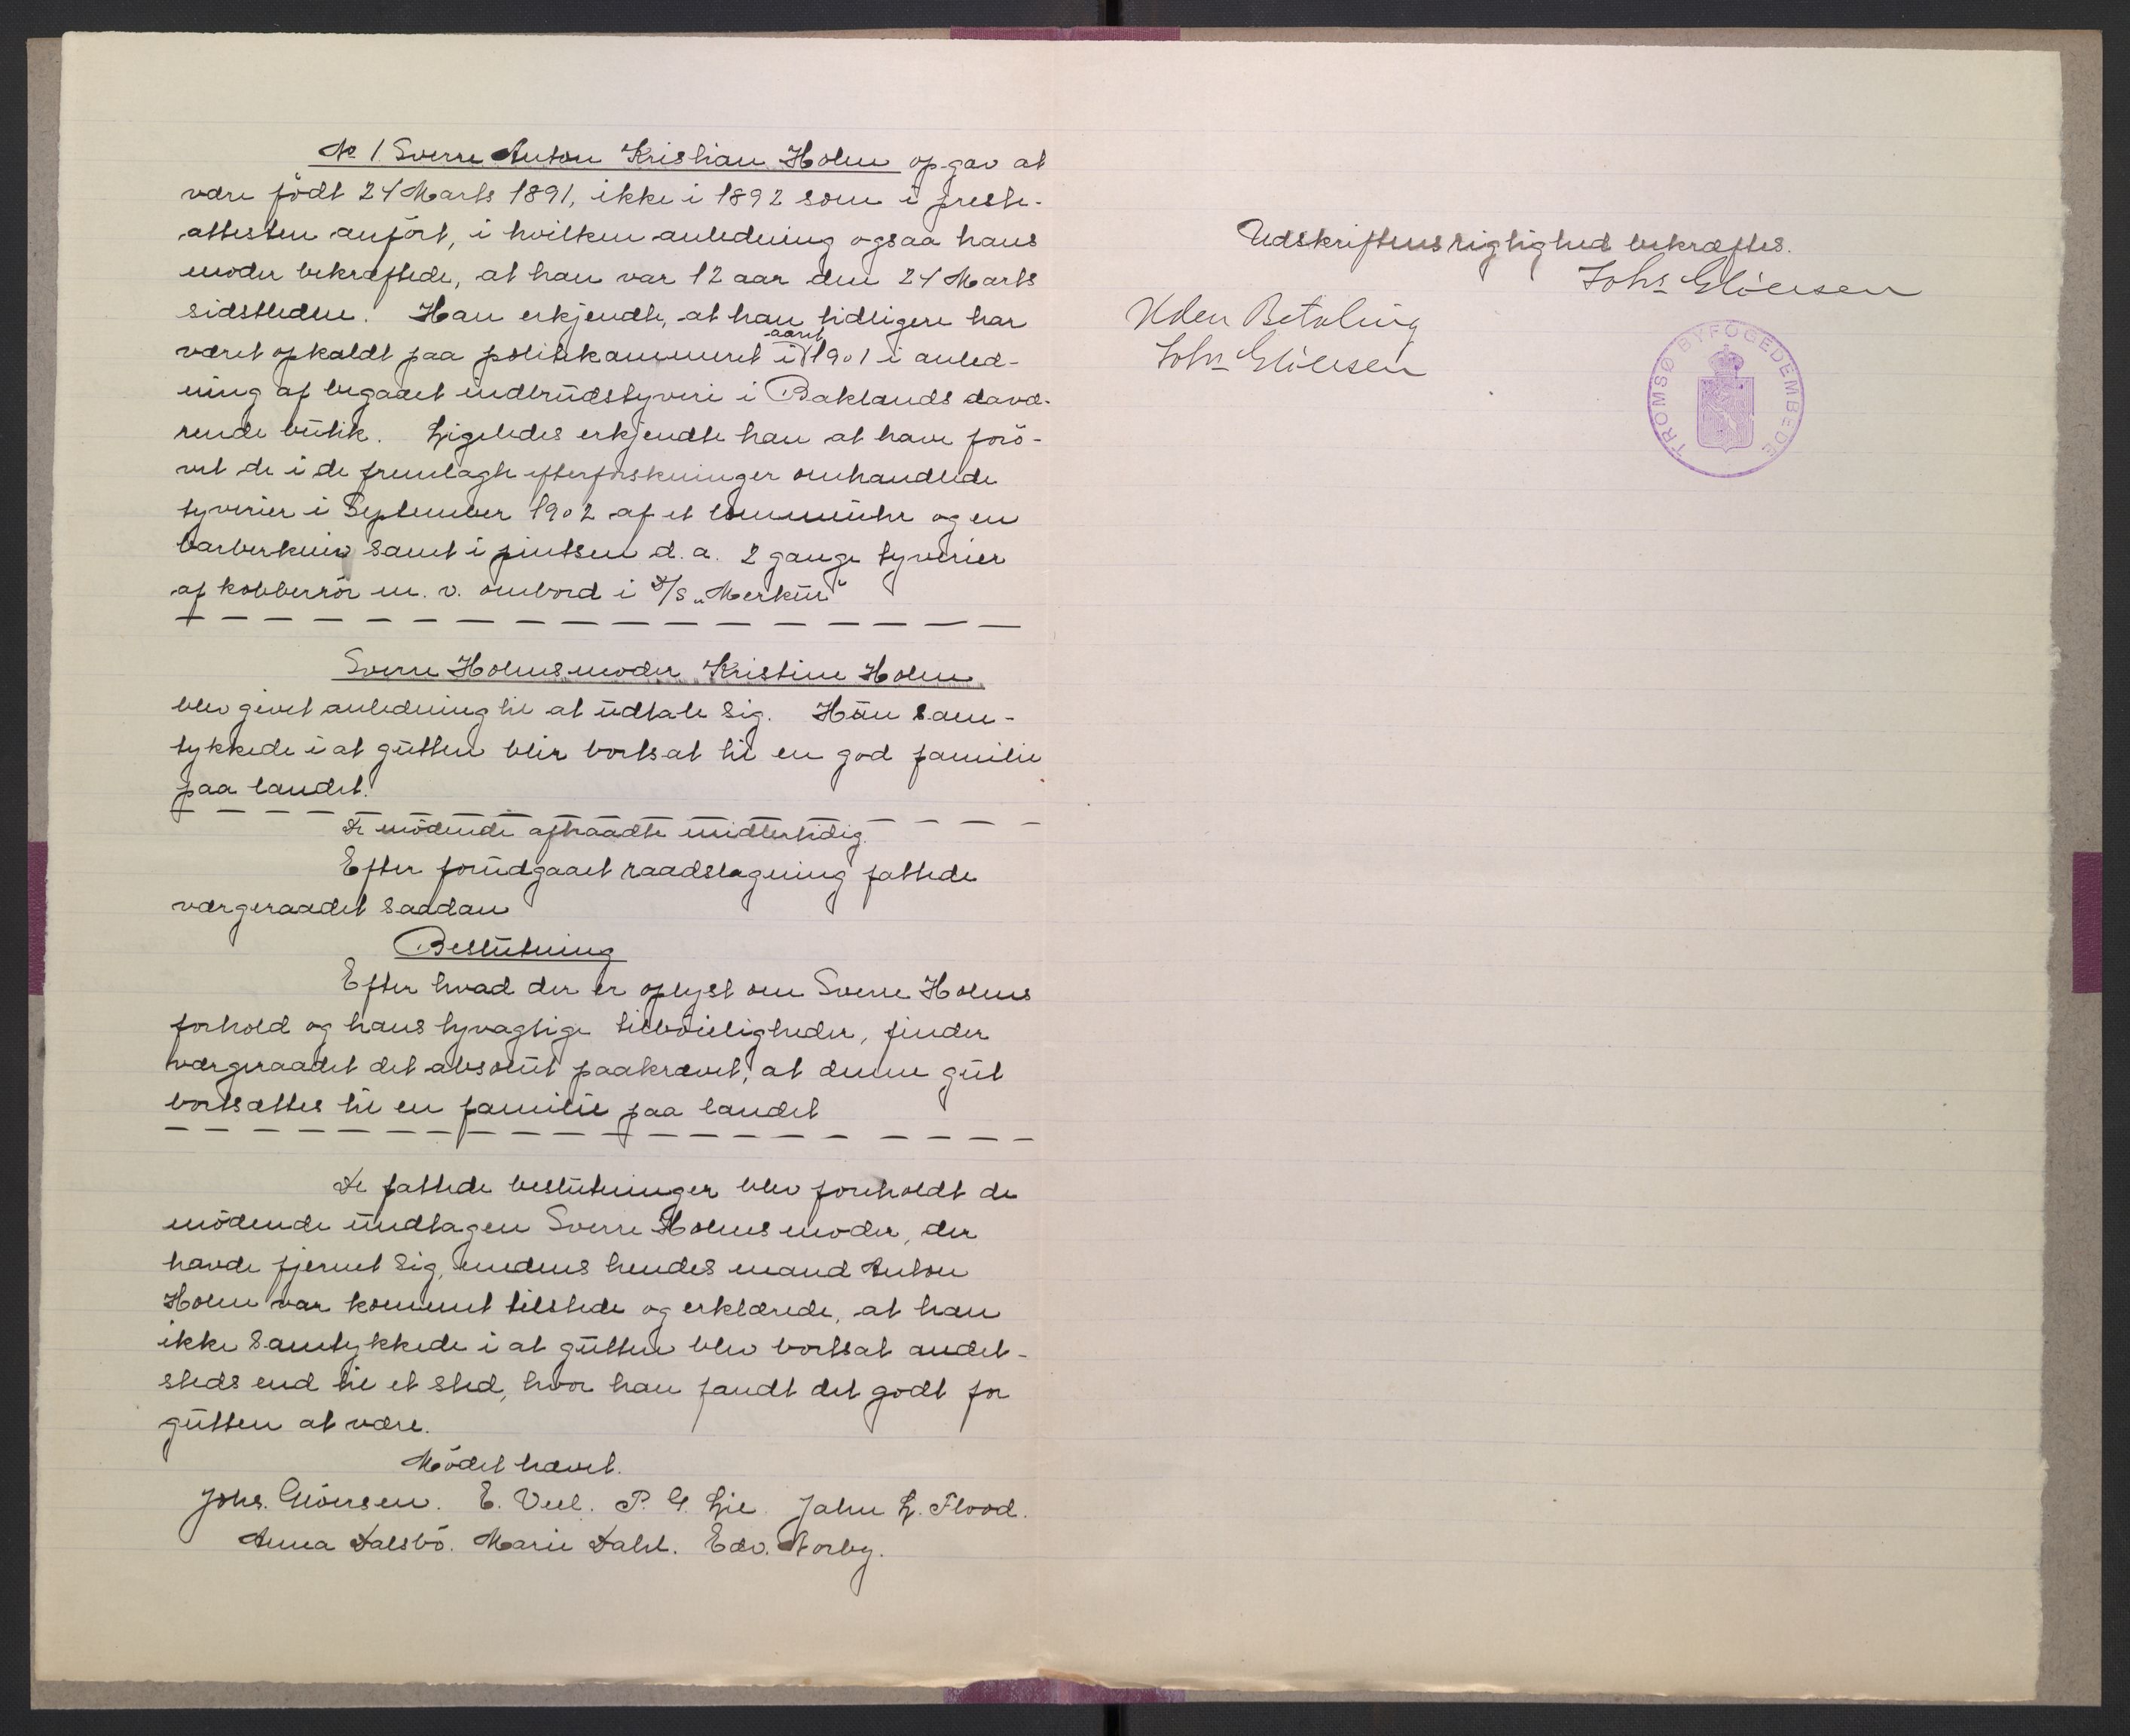 No 1 Sverre Anton Kristian Holm opgav at
være födt 24 Marts 1891, ikke i 1892 som i preste-
attesten anfört, i hvilken anledning ogsaa hans
moder bekræftede, at han var 12 aar den 24 Marts
sidstleden. Han erkjendte, at han tidligere har
været opkaldt paa politikammeret i aaret 1901 i anled-
ning af begaaet indbrudstyveri i Baklands davæ-
rende butik. Ligeledes erkjendte han at have forö-
vet de i de fremlagte efterforskninger omhandlede
tyverier i September 1902 af et lommeuhr og en
barberkniv samt i pintsen d. a. 2 gange tyverier
af kobberrör m. v. ombord i D/S „Merkur"
Sverre Holms moder Kristine Holm
blev givet anledning til at udtale sig. Hun sam-
tykkede i at gutten blir bortsat til en god familie
paa landet.
De mödende aftraadte midlertidig.
Efter forudgaaet raadslagning fattede
værgeraadet saadan
Beslutning
Efter hvad der er oplyst om Sverre Holms
forhold og hans tyvagtige tilböieligheder, finder
værgeraadet det absolut paakrævet, at denne gut
bortsættes til en familie paa landet
De fattede beslutninger blev foreholdt de
mödende undtagen Sverre Holms moder, der
havde fjernet sig, medens hendes mand Anton
Holm var kommet tilstede og erklærede, at han
ikke samtykkede i at gutten blev bortsat andet-
steds end til et sted, hvor han fandt det godt for
gutten at være.
Mödet hævet.
Johs. Giöersen. E. Veel. P. G. Lie. Jahn L. Flood.
Anna Dalsbö. Marie Dahl. Edv. Norby.
Udskriftens rigtighed bekræftes.
Johs Giöersen
Uden Betaling
Johs Giöersen
TROMSØ BYFOGEDEMBEDE